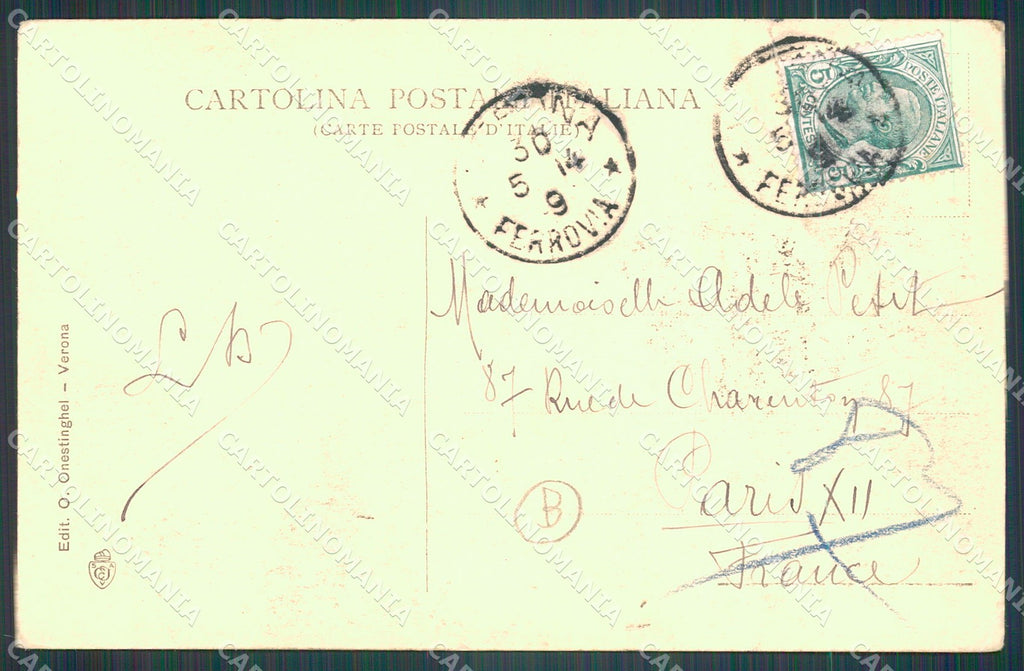 CARTOLINA POSTALE ITALIANA
(CARTE POSTALE D'ITALIE)
30
5 14
9
FERROVIA
POSTE ITALIANE
CENTES
5
Mademoiselle Adele Petit
87 Rue de Charenton 87
Paris XII
France
B
Edit. O. Onestinghel – Verona
CARTOLINOMANIA